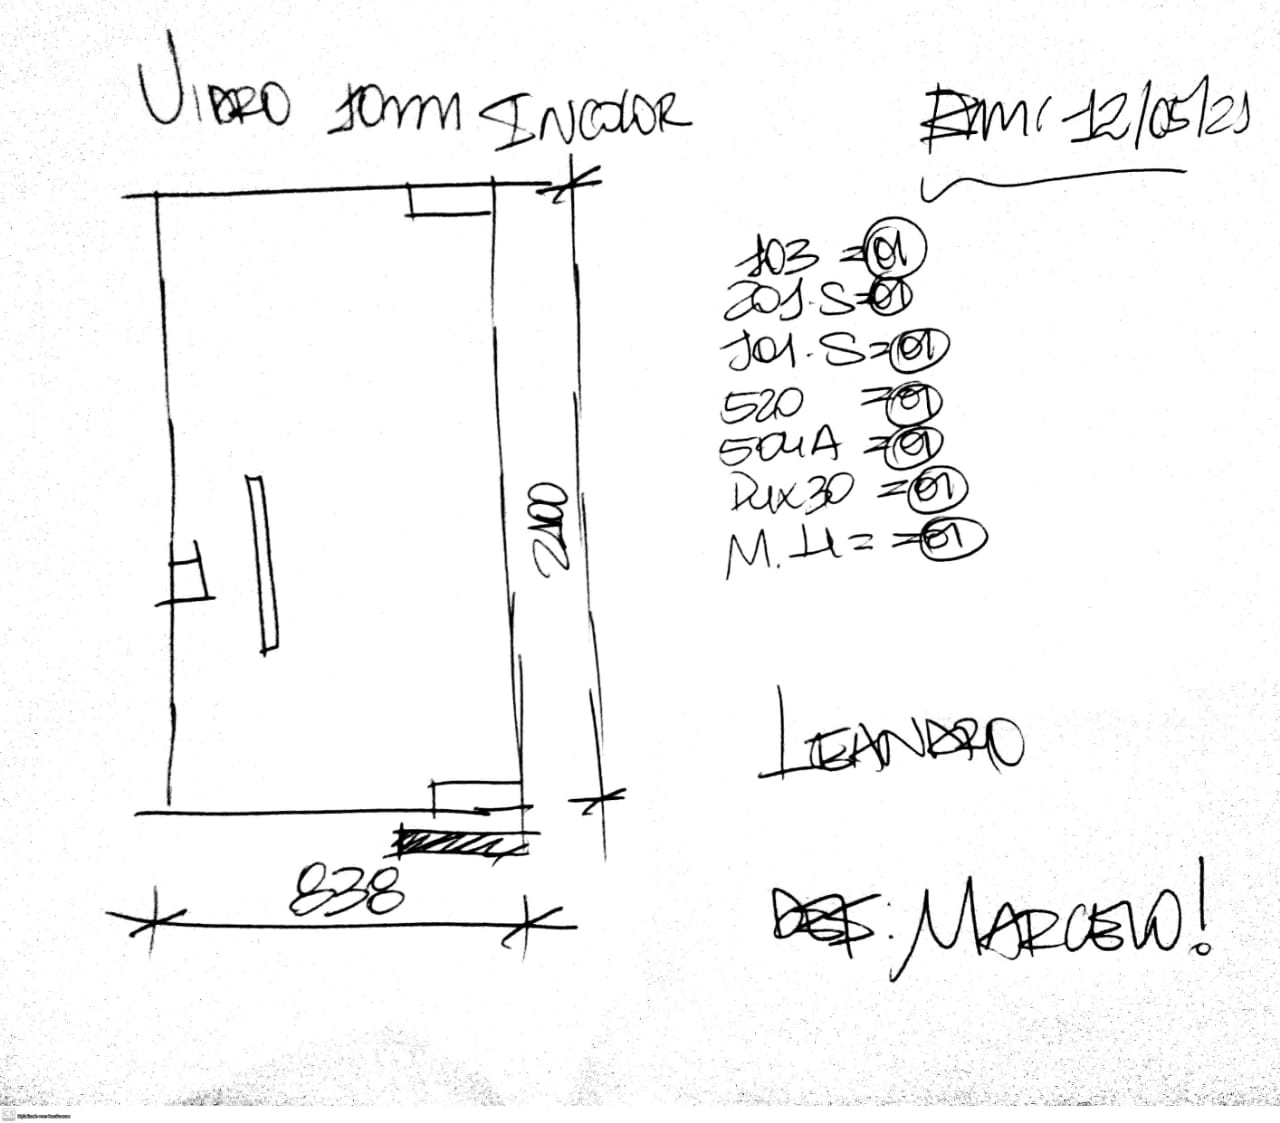 VIDRO 10mm INCOLOR
Em: 12/05/21
103 = 01
201.S = 01
101.S = 01
520 = 01
504A = 01
Dux30 = 01
M.H = = 01
2100
838
LEANDRO
DES: MARCELO!
CS